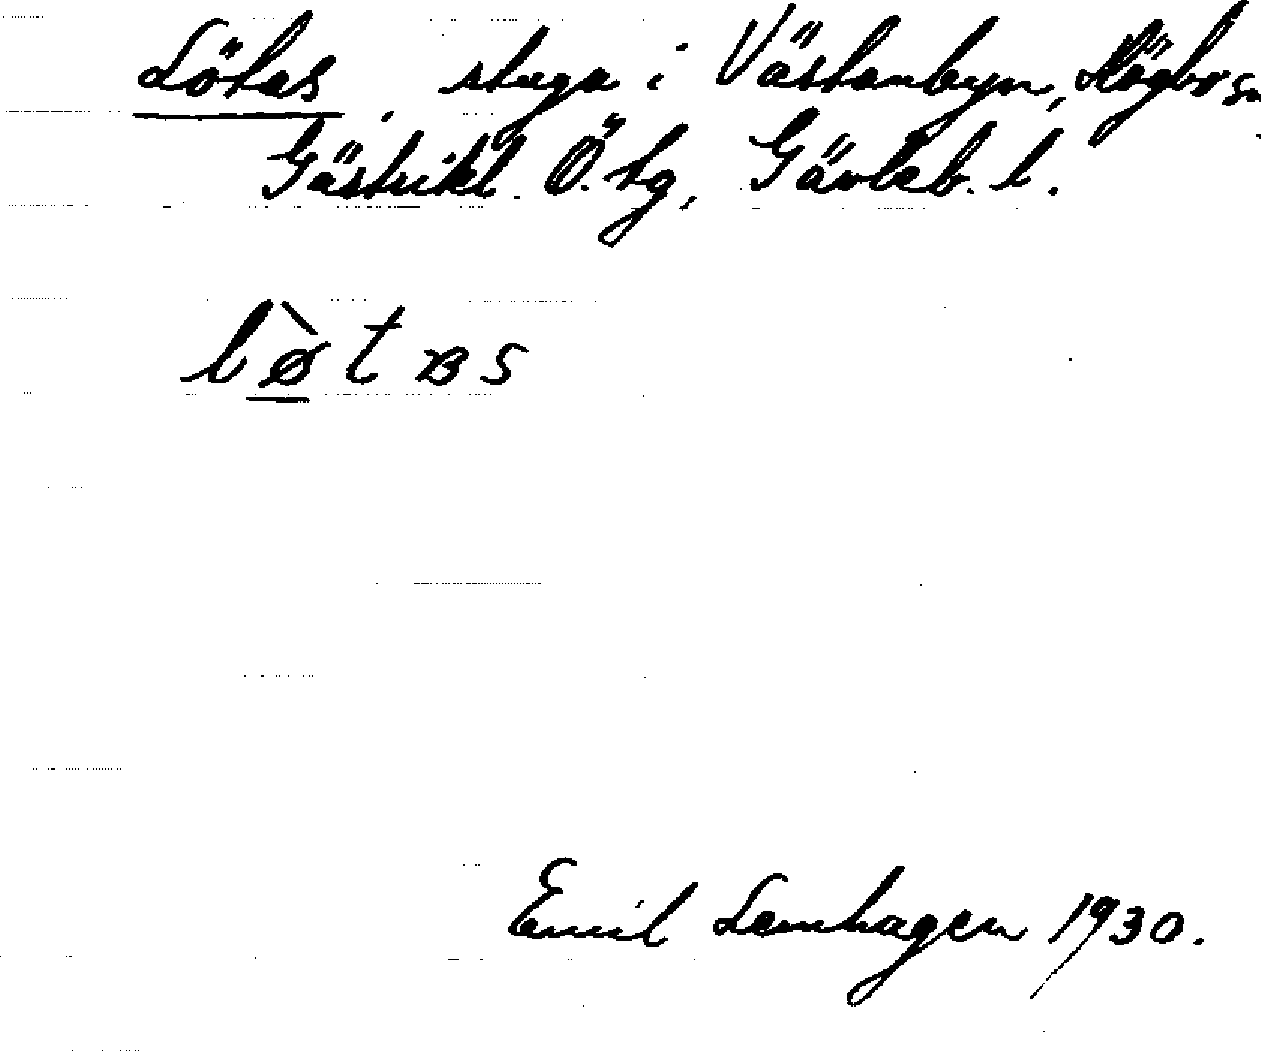 Lötas, stuga i Västanbyn, Högbo sn
Gästrikl. Ö. tg, Gävleb. l.
lø̀tas
Emil Lemhagen 1930.